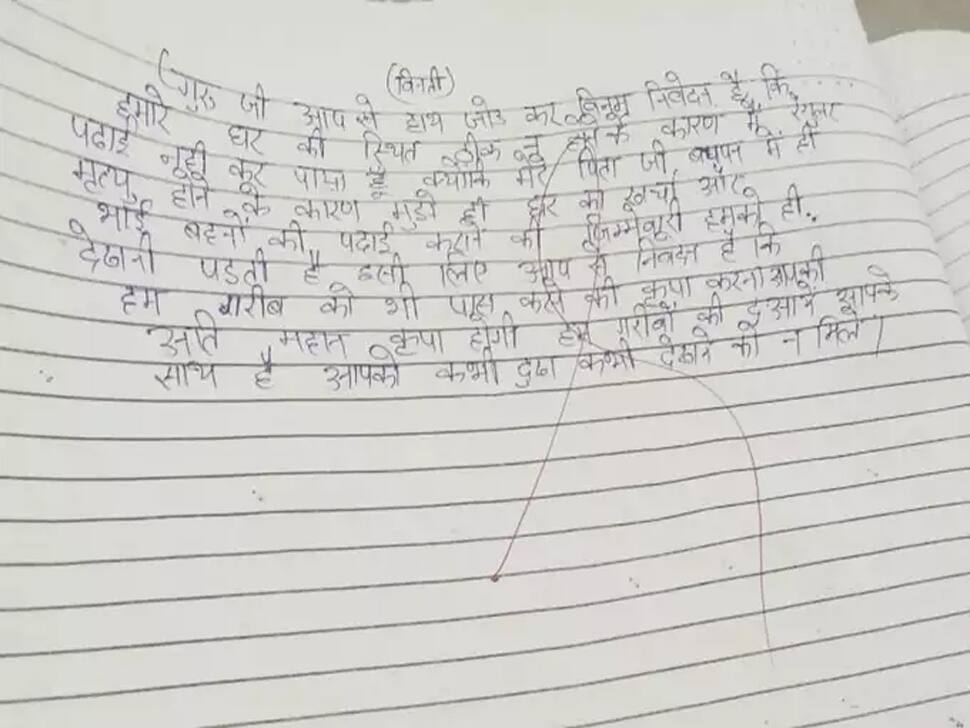 (विनती)
(गुरु जी आप से हाथ जोड कर विनम्र निवेदन है, कि
हमारे घर की स्थित ठीक न होने के कारण मैं रेगुलर
पढाई नही कर पाया हूँ क्योकि मेरे पिता जी बचपन में ही
मृत्यु होने के कारण मुझे ही घर का खर्चा और
भाई बहनों की पढाई कराने की जिम्मेवारी हमको ही
देखानी पडती है इसी लिए आप से निवेदन है कि
हम गरीब को भी पास करने की कृपा करना आपकी
अति महान कृपा होगी हम गरीबों की दुआएँ आपके
साथ है आपको कभी दुख कभी देखाने को न मिले।